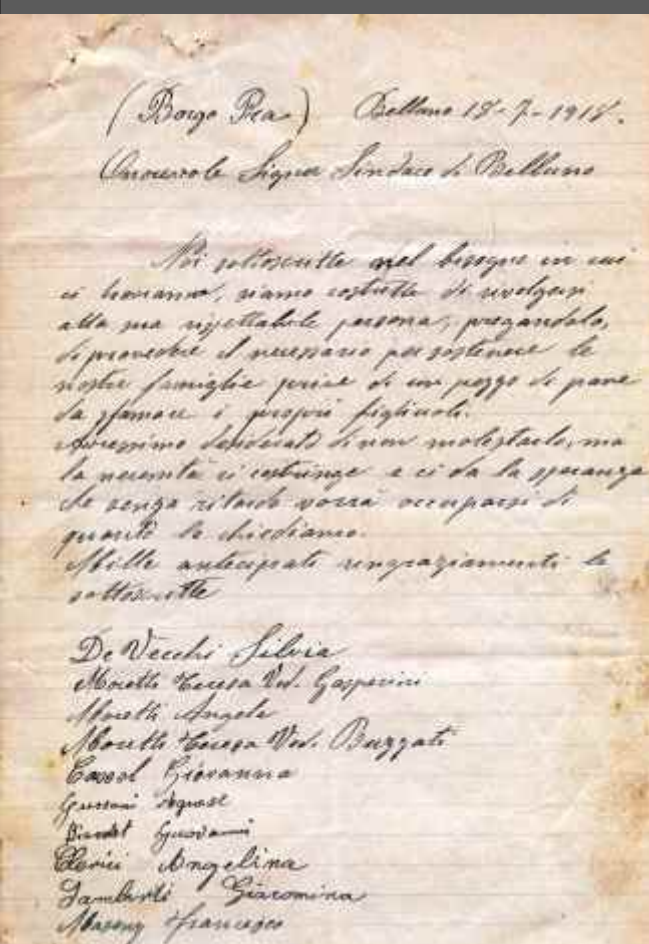 (Borgo Pra) Belluno 18-7-1918.
Onorevole Signor Sindaco di Belluno
Noi sottoscritte nel bisogno in cui
ci troviamo, siamo costrette di rivolgersi
alla sua rispettabile persona, pregandola,
di provvedere il necessario per sostenere le
nostre famiglie prive di un pezzo di pane
da sfamare i proprii figliuoli.
Avressimo desiderato di non molestarlo, ma
la necessità ci costringe e ci da la speranza
che senza ritardo vorrà occuparsi di
quanto le chiediamo.
Mille anticipati ringraziamenti le
sottoscritte
De Vecchi Silvia
Moretti Teresa Ved. Gasperini
Moretti Angela
Moretti Teresa Ved. Buzzati
Cassol Giovanna
Agnese
Giovanni
Clerici Angelina
Giacomina
Francesco